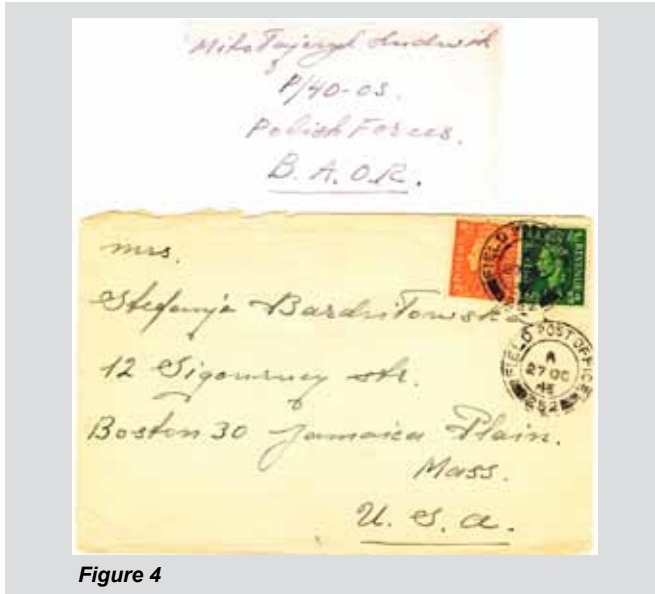 Mikołajczyk Ludwik
P/40-OS.
Polish Forces.
B. A. O. R.
mrs.
Stefanja Bardziłowska
12 Sigourney str.
Boston 30 Jamaica Plain.
Mass.
U. S. A.
FIELD POST OFFICE
A
27 OC
252
Figure 4